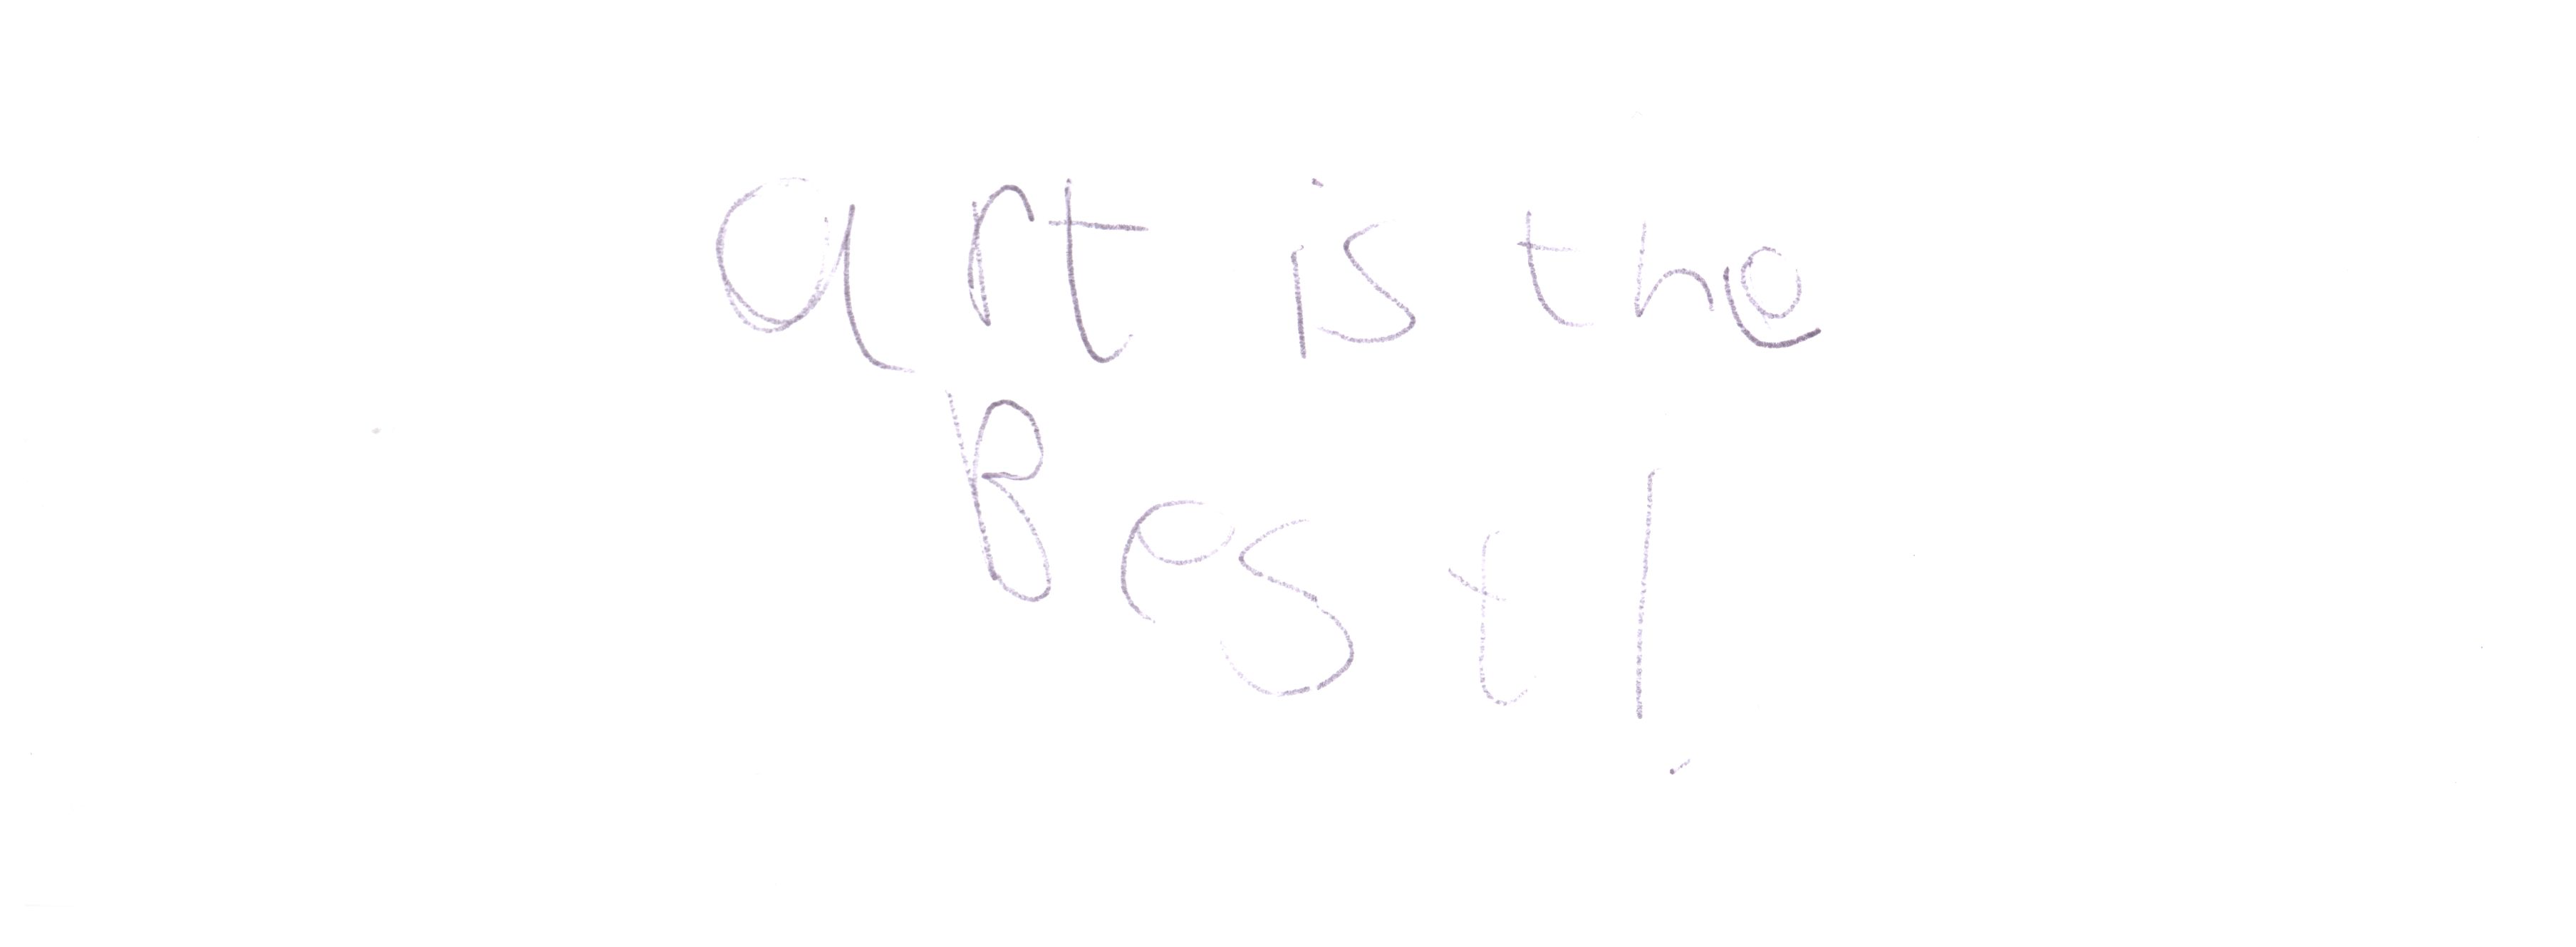 art is the
Best!